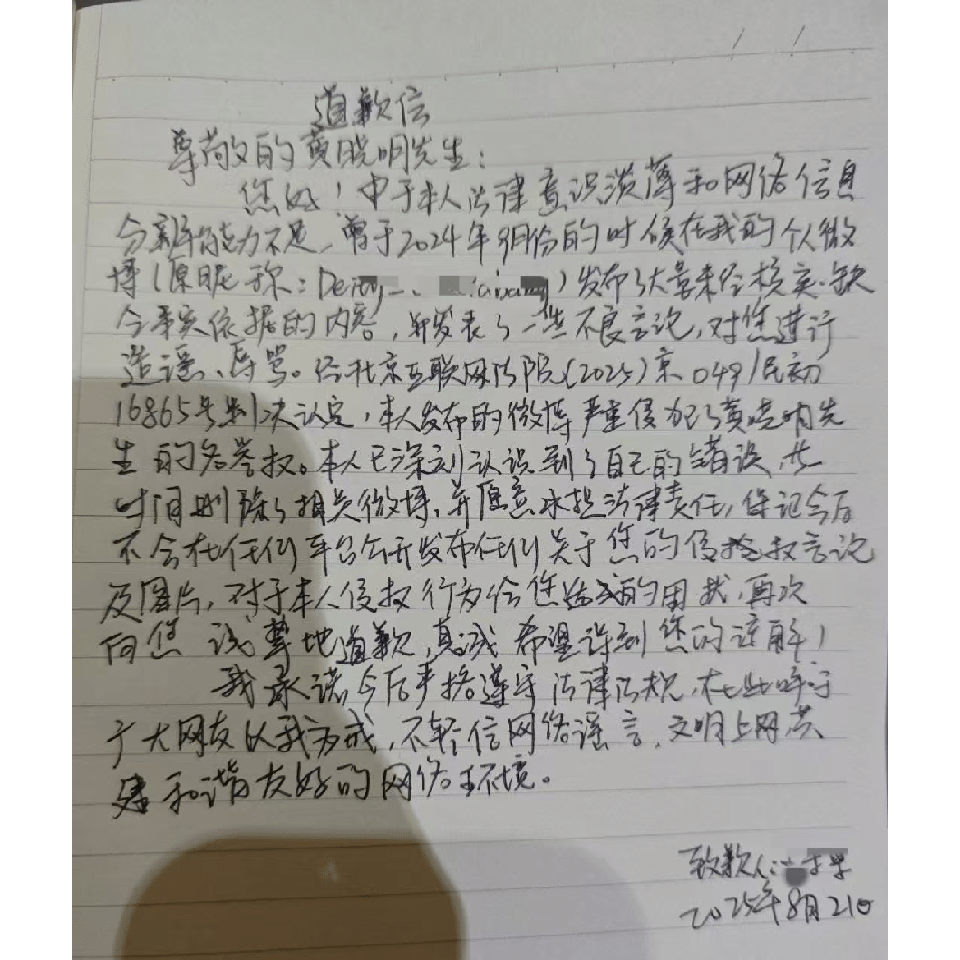 道歉信
尊敬的黄晓明先生：
您好！由于本人法律意识淡薄和网络信息
分辨能力不足，曾于2024年9月份的时候在我的个人微
博（原昵称：De）发布了大量未经核实、缺
乏事实依据的内容，并发表了一些不良言论，对您进行
造谣、辱骂。经北京互联网法院（2025）京0491民初
16865号判决认定，本人发布的微博严重侵犯了黄晓明先
生的名誉权。本人已深刻认识到了自己的错误，
时间删除了相关微博，并愿意承担法律责任，保证今后
不会在任何平台公开发布任何关于您的侵权言论
及图片，对于本人侵权行为给您造成的困扰，再次
向您诚挚地道歉，真诚希望得到您的谅解！
我承诺今后严格遵守法律法规，在此呼吁
广大网友以我为戒，不轻信网络谣言，文明上网，共
建和谐友好的网络环境。
致歉人：
2025年8月21日